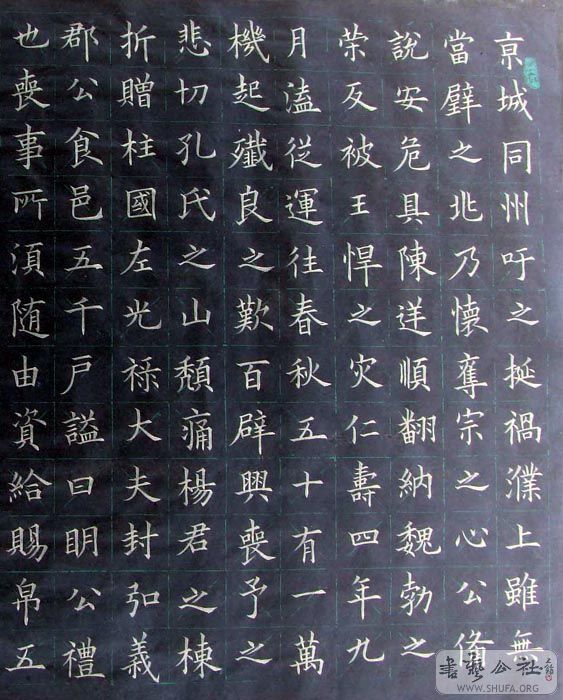 亰城同州吁之挻禍濮上雖無
當璧之兆乃懷奪宗之心公俻
說安危具陳逆順翻納魏勃之
榮反被王悍之灾仁壽四年九
月溘從運往春秋五十有一萬
機起殲良之歎百辟興喪予之
悲切孔氏之山頹痛楊君之棟
折贈柱國左光祿大夫封弘義
郡公食邑五千戶謚曰明公禮
也喪事所須随由資給賜帛五
書藝公社
WWW.SHUFA.ORG